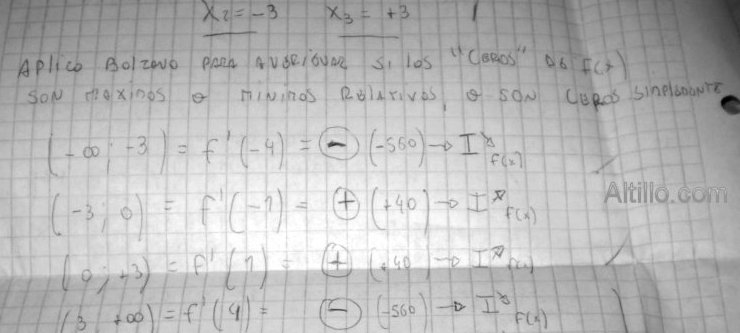 X₂ = -3 X₃ = +3
Aplico Bolzano para averiguar si los "Ceros" de f(x)
son maximos o minimos relativos, o son ceros simplemente
(-∞; -3) = f'(-4) = ⊖ (-560) → I↘ f(x)
(-3; 0) = f'(-1) = ⊕ (+40) → I↗ f(x)
Altillo.com
(0; +3) = f'(1) = ⊕ (+40) → I↗ f(x)
(3; +∞) = f'(4) = ⊖ (-560) → I↘ f(x)